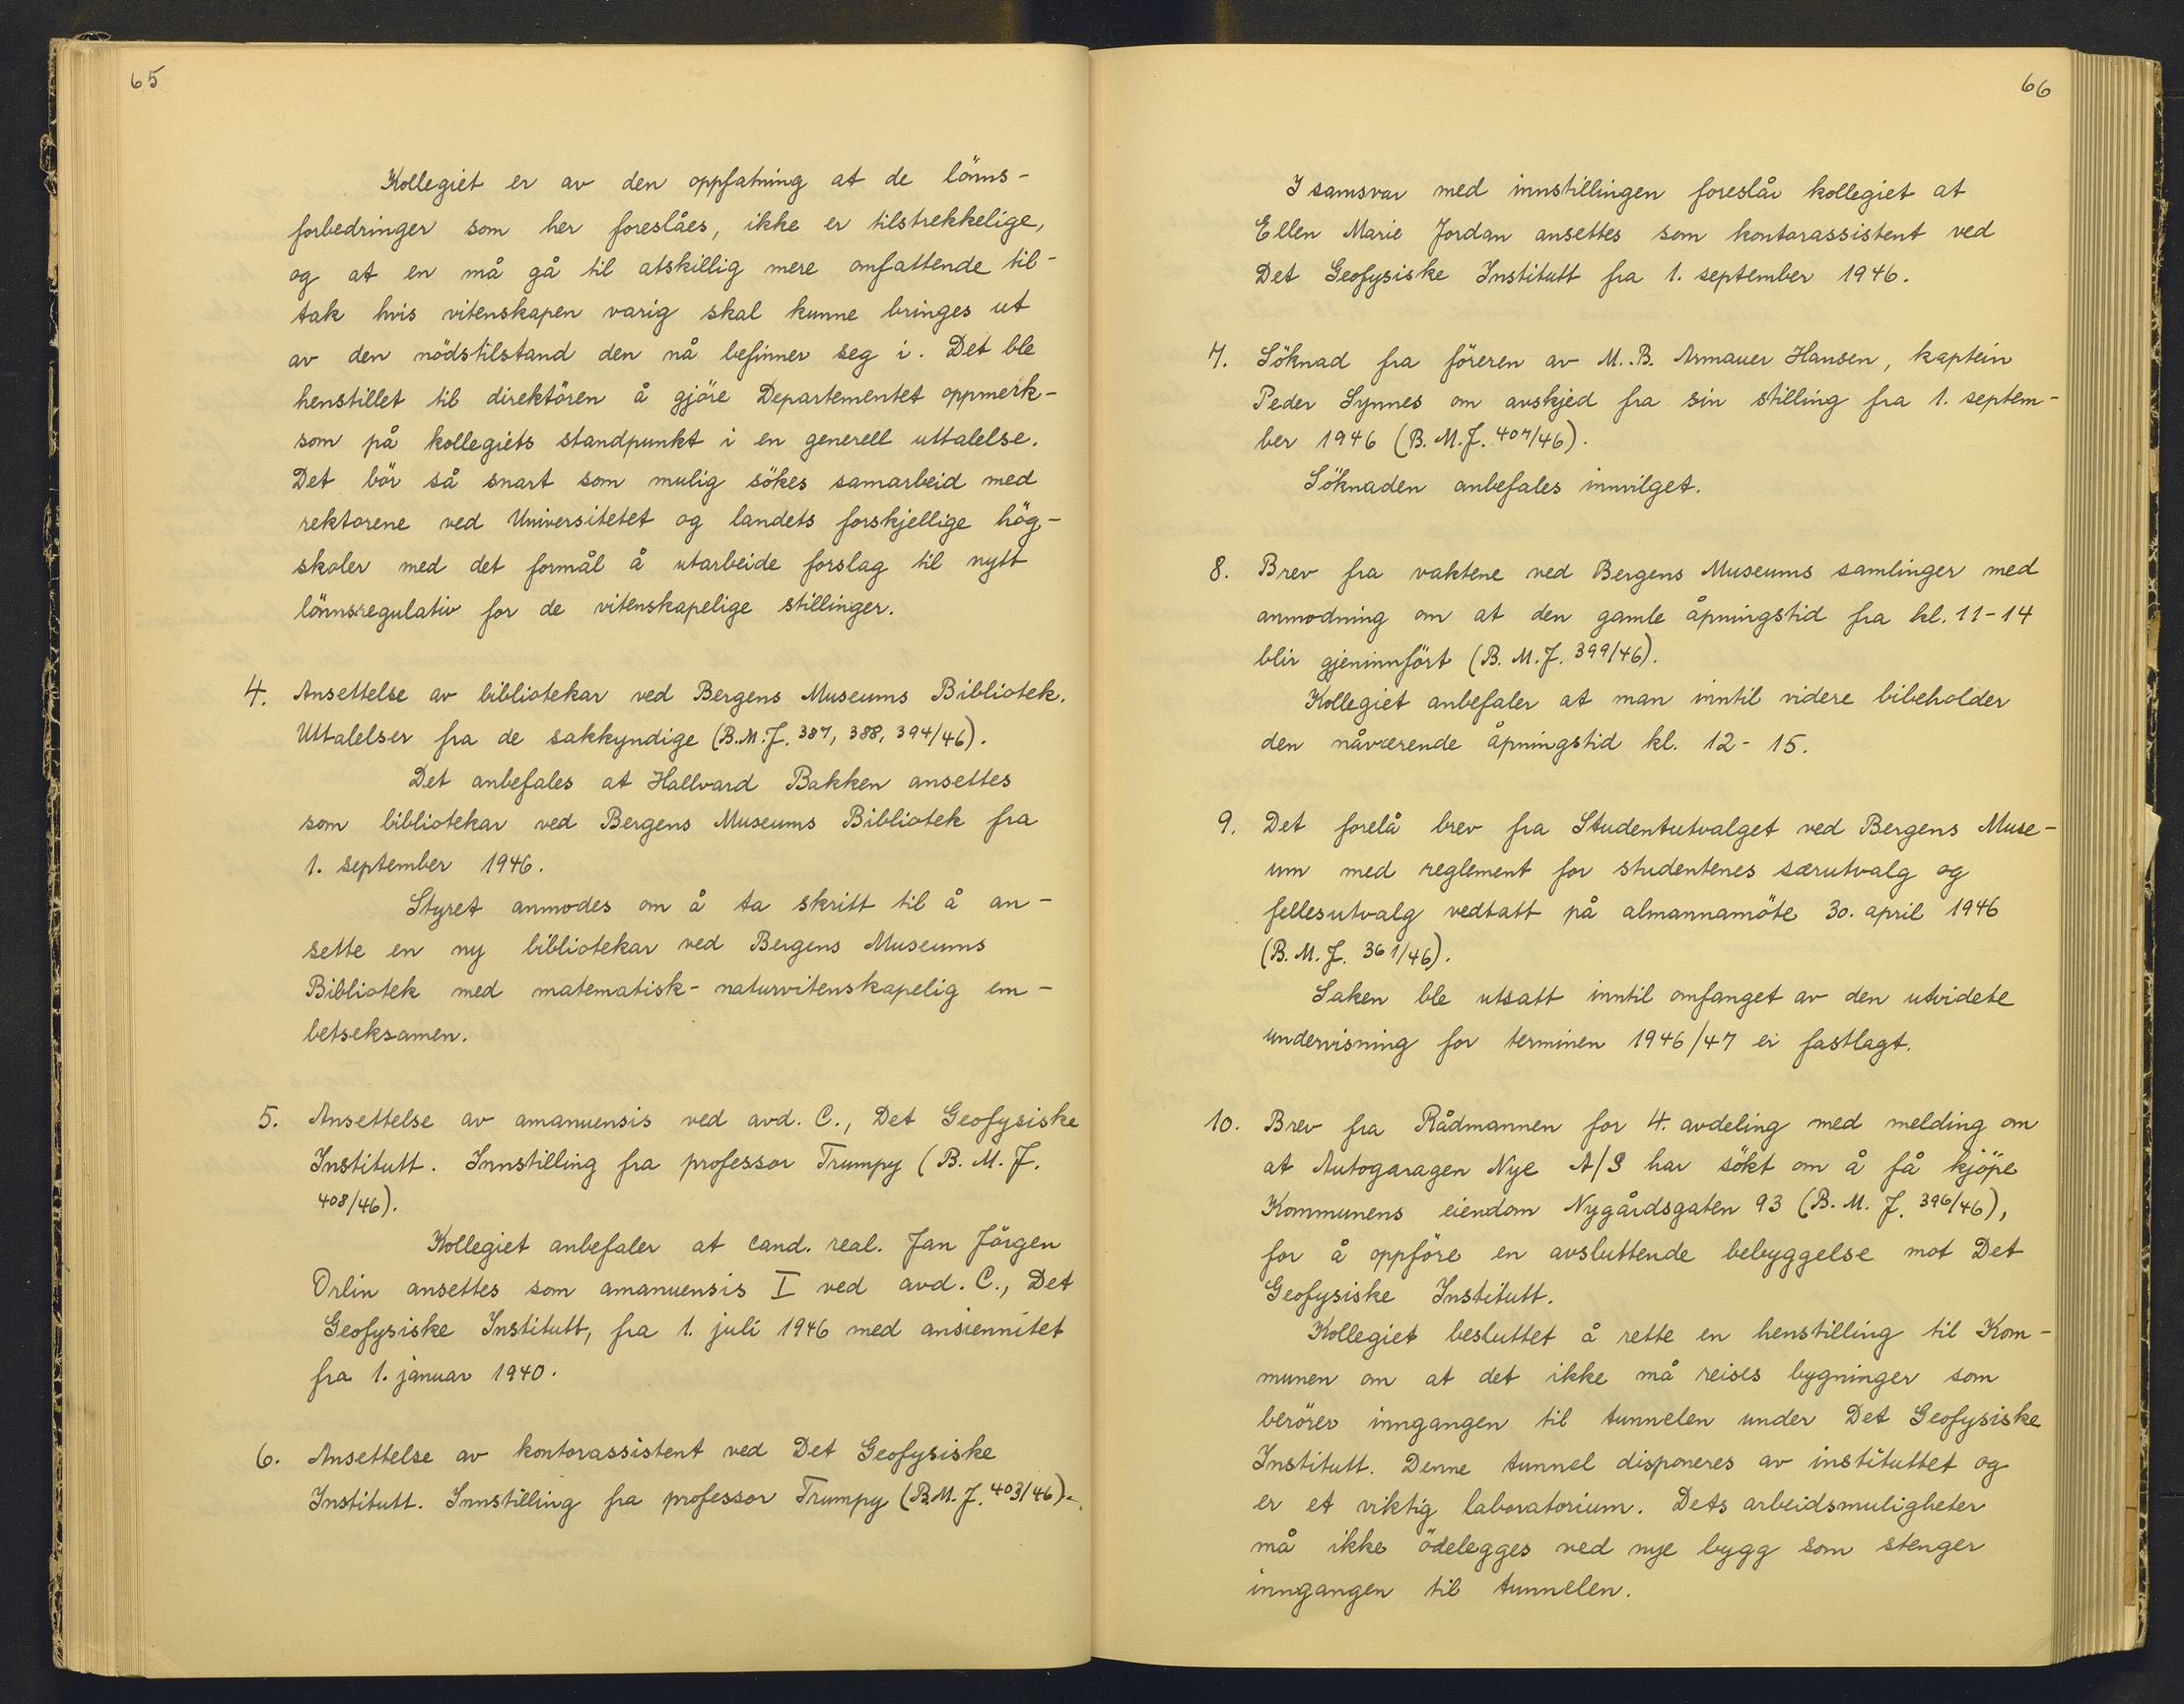 65
Kollegiet er av den oppfatning at de löns-
forbedringer som her foreslåes, ikke er tilstrekkelige,
og at en må gå til atskillig mere omfattende til-
tak hvis vitenskapen varig skal kunne bringes ut
av den nödstilstand den nå befinner seg i. Det ble
henstillet til direktören å gjöre Departementet oppmerk-
som på kollegiets standpunkt i en generell uttalelse.
Det bör så snart som mulig sökes samarbeid med
rektorene ved Universitetet og landets forskjellige hög-
skoler med det formål å utarbeide forslag til nytt
lönnsregulativ for de vitenskapelige stillinger.
4. Ansettelse av bibliotekar ved Bergens Museums Bibliotek.
Uttalelser fra de sakkyndige (B.M.J. 387, 388, 394/46).
Det anbefales at Hallvard Bakken ansettes
som bibliotekar ved Bergens Museums Bibliotek fra
1. september 1946.
Styret anmodes om å ta skritt til å an-
sette en ny bibliotekar ved Bergens Museums
Bibliotek med matematisk-naturvitenskapelig em-
betseksamen.
5. Ansettelse av amanuensis ved avd. C., Det Geofysiske
Institutt. Innstilling fra professor Trumpy (B. M. J.
408/46).
Kollegiet anbefaler at cand. real. Jan Jörgen
Orlin ansettes som amanuensis I ved avd. C., Det
Geofysiske Institutt, fra 1. juli 1946 med ansiennitet
fra 1. januar 1940.
6. Ansettelse av kontorassistent ved Det Geofysiske
Institutt. Innstilling fra professor Trumpy (B.M.J. 403/46).
66
I samsvar med innstillingen foreslår kollegiet at
Ellen Marie Jordan ansettes som kontorassistent ved
Det Geofysiske Institutt fra 1. september 1946.
7. Söknad fra föreren av M.B. Armauer Hansen, kaptein
Peder Synnes om avskjed fra sin stilling fra 1. septem-
ber 1946 (B. M. J. 407/46).
Söknaden anbefales innvilget.
8. Brev fra vaktene ved Bergens Museums samlinger med
anmodning om at den gamle åpningstid fra kl. 11-14
blir gjeninnfört (B. M. J. 399/46).
Kollegiet anbefaler at man inntil videre bibeholder
den nåværende åpningstid kl. 12 - 15.
9. Det forelå brev fra Studentutvalget ved Bergens Muse-
um med reglement for studentenes særutvalg og
fellesutvalg vedtatt på almannamöte 30. april 1946
(B. M. J. 361/46).
Saken ble utsatt inntil omfanget av den utvidete
undervisning for terminen 1946/47 er fastlagt.
10. Brev fra Rådmannen for 4. avdeling med melding om
at Autogaragen Nye A/S har sökt om å få kjöpe
Kommunens eiendom Nygårdsgaten 93 (B. M. J. 396/46),
for å oppföre en avsluttende bebyggelse mot Det
Geofysiske Institutt.
Kollegiet besluttet å rette en henstilling til Kom-
munen om at det ikke må reises bygninger som
berörer inngangen til tunnelen under Det Geofysiske
Institutt. Denne tunnel disponeres av instituttet og
er et viktig laboratorium. Dets arbeidsmuligheter
må ikke ödelegges ved nye bygg som stenger
inngangen til tunnelen.